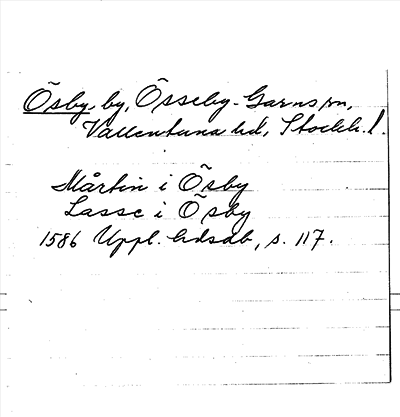 Ösby, by, Össeby-Garns sn,
Vallentuna hd, Stockh. l.
Mårtin i Ösby
Lasse i Ösby
1586 Uppl. hdsdb, s. 117.